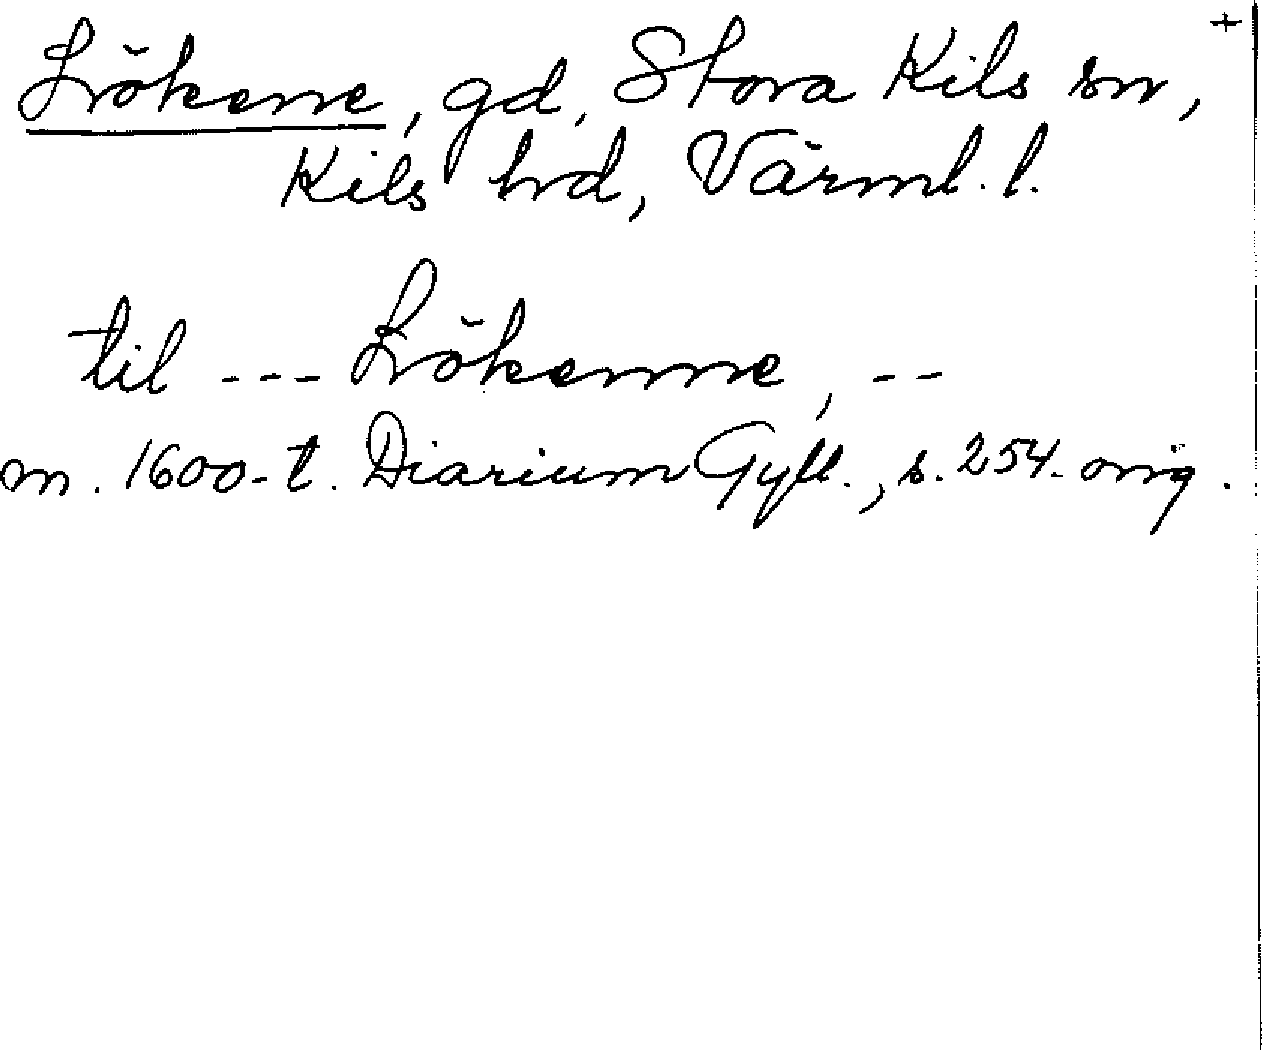 +
Lökene, gd, Stora Kils sn,
Kils hd, Värml. l.
til --- Lökenne, --
m. 1600-t. Diarium Gyll., s. 254. orig.